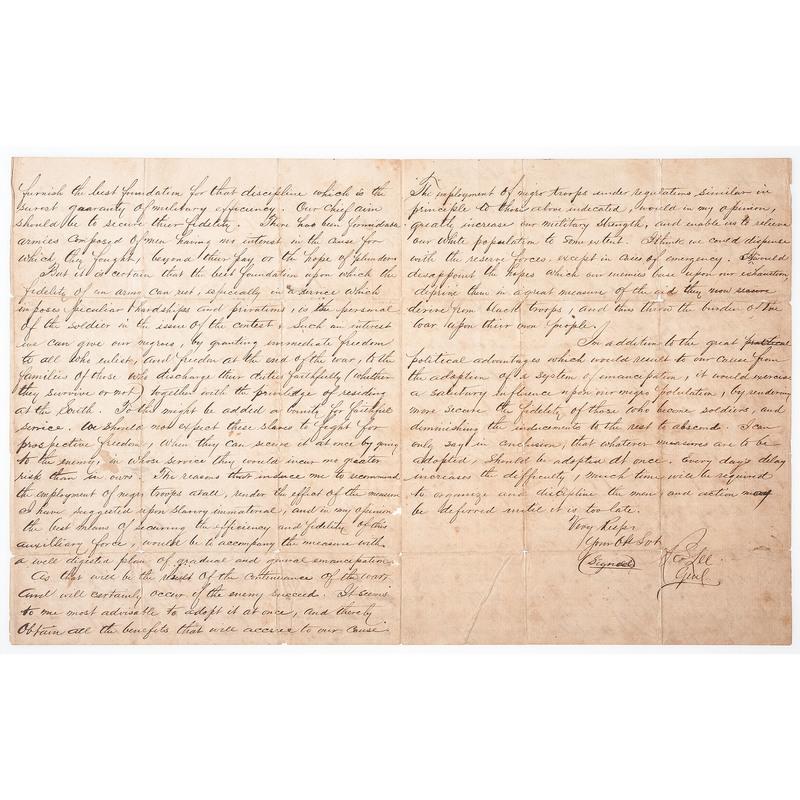 furnish the best foundation for that discipline which is the
surest guaranty of military efficiency. Our chief aim
should be to secure their fidelity. There has been formidable
armies composed of men having no interest in the cause for
which they fought, beyond their pay or the hope of plunder
But it is certain that the best foundation upon which the
fidelity of an army can rest, especially in a service which
imposes peculiar hardships and privations, is the personal
of the soldier in the issue of the contest. Such an interest
we can give our negroes, by granting immediate freedom
to all who enlist, and freedom at the end of the war, to the
families of those who discharge their duties faithfully (whether
they survive or not) together with the priviledge of residing
at the South. To this might be added a bounty for faithful
service. We should not expect these slaves to fight for
prospective freedom, when they can secure it at once by going
to the enemy, in whose service they would incur no greater
risk than in ours. The reasons that induce me to recommend
the employment of negro troops at all, render the effect of the measure
I have suggested upon slavery immaterial, and in my opinion
the best means of securing the efficiency and fidelity of this
auxilliary force, would be to accompany the measure with
a well digested plan of gradual and general emancipation.
As that will be the result of the continuance of the war
and will certainly occur if the enemy succeed. It seems
to me most advisable to adopt it at once, and thereby
obtain all the benefits that will accrue to our cause.
The employment of negro troops under regulations similar in
principle to those above indecated, would in my opinion,
greatly increase our military strength, and enable us to relieve
our white population to some extent. I think we could dispense
with the reserve forces, except in cases of emergency. It would
disappoint the hopes which our enemies base upon our exhaustion,
deprive them in a great measure of the aid they now
derive from black troops, and thus throw the burden of the
war upon their own people.
In addition to the great
political advantages which would result to our cause from
the adoption of a system of emancipation, it would exercise
a salutary influence upon our negro population, by rendering
more secure the fidelity of those who become soldiers, and
diminishing the inducements to the rest to abscond. I can
only say in conclusion, that whatever measures are to be
adopted, should be adopted at once. Every day's delay
increases the difficulty, much time will be required
to organize and discipline the men, and action may
be deferred until it is too late.
Very Respt
Your Obt Svt
(Signed) Lee
Genl